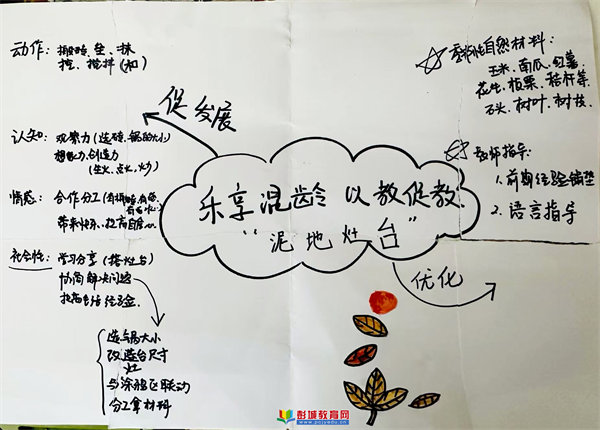 动作: 搬砖、垒、抹
挖、搅拌(和)
认知: 观察力(选砖、锅的大小)
想象力、创造力
(生火、点火、火力)
情感: 合作分工(有搬砖,有
带来快乐、提高自信心
社会性: 学习分享(搭灶台)
协商解决问题
提高生活经验
选锅大小
改造台尺寸
灶
与涂鸦区联动
分工拿材料
促发展
乐享混龄 以教促教
“泥地灶台”
优化
季节性自然材料:
玉米、南瓜、红薯
花生、板栗、秸秆等
石头、树叶、树枝
教师指导:
1. 前期经验铺垫
2. 语言指导
彭城教育网
www.pcjyedu.cn